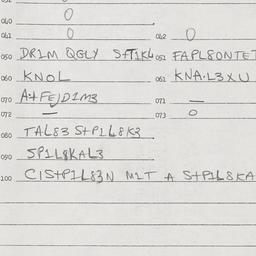 040 0
041 0 042 0
050 DR1M QGLY S+T1K6 051 FAPL80NTET
060 KNOL 061 KNA·L3XU
070 A+FEJD1M3 071 —
072 — 073 0
080 TAL83 S+P1L8K3
090 SP1L8KAL3
100 C1S+P1L83N M2T A S+P1L8KA